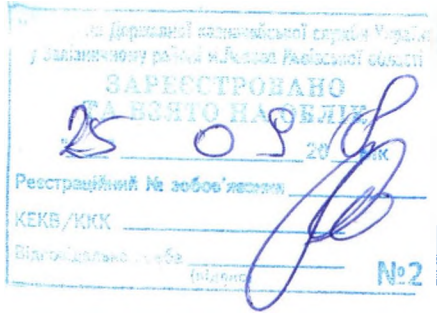 Державної казначейської служби України
у Залізничному районі м.Львова Львівської області
ЗАРЕЄСТРОВАНО
ТА ВЗЯТО НА ОБЛІК
25 09 20 рік
Реєстраційний № зобов'язання
КЕКВ/ККК
Відповідальна особа
(підпис)
№2